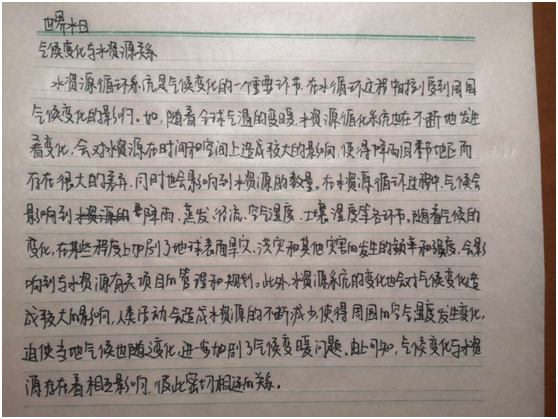 世界水日
气候变化与水资源关系
水资源循环系统是气候变化的一个重要环节,在水循环过程中将受到周围
气候变化的影响。如,随着全球气温的变暖,水资源循化系统也在不断地发生
着变化,会对水资源在时间和空间上造成较大的影响,使得降雨因季节地区而
存在很大的差异,同时也会影响到水资源的数量。在水资源循环过程中,气候会
影响到降雨、蒸发、径流、空气湿度、土壤湿度等各环节。随着气候的
变化,在某些程度上加剧了地球表面旱灾、洪灾和其他灾害的发生的频率和强度,会影
响到与水资源有关项目的管理和规划。此外,水资源系统的变化也会对气候变化造
成较大的影响,人类活动会造成水资源的不断减少,使得周围的空气温度发生变化,
迫使当地气候也随之变化,进一步加剧了气候变暖问题。由上可知,气候变化与水资
源存在着相互影响、彼此密切相连的关系。